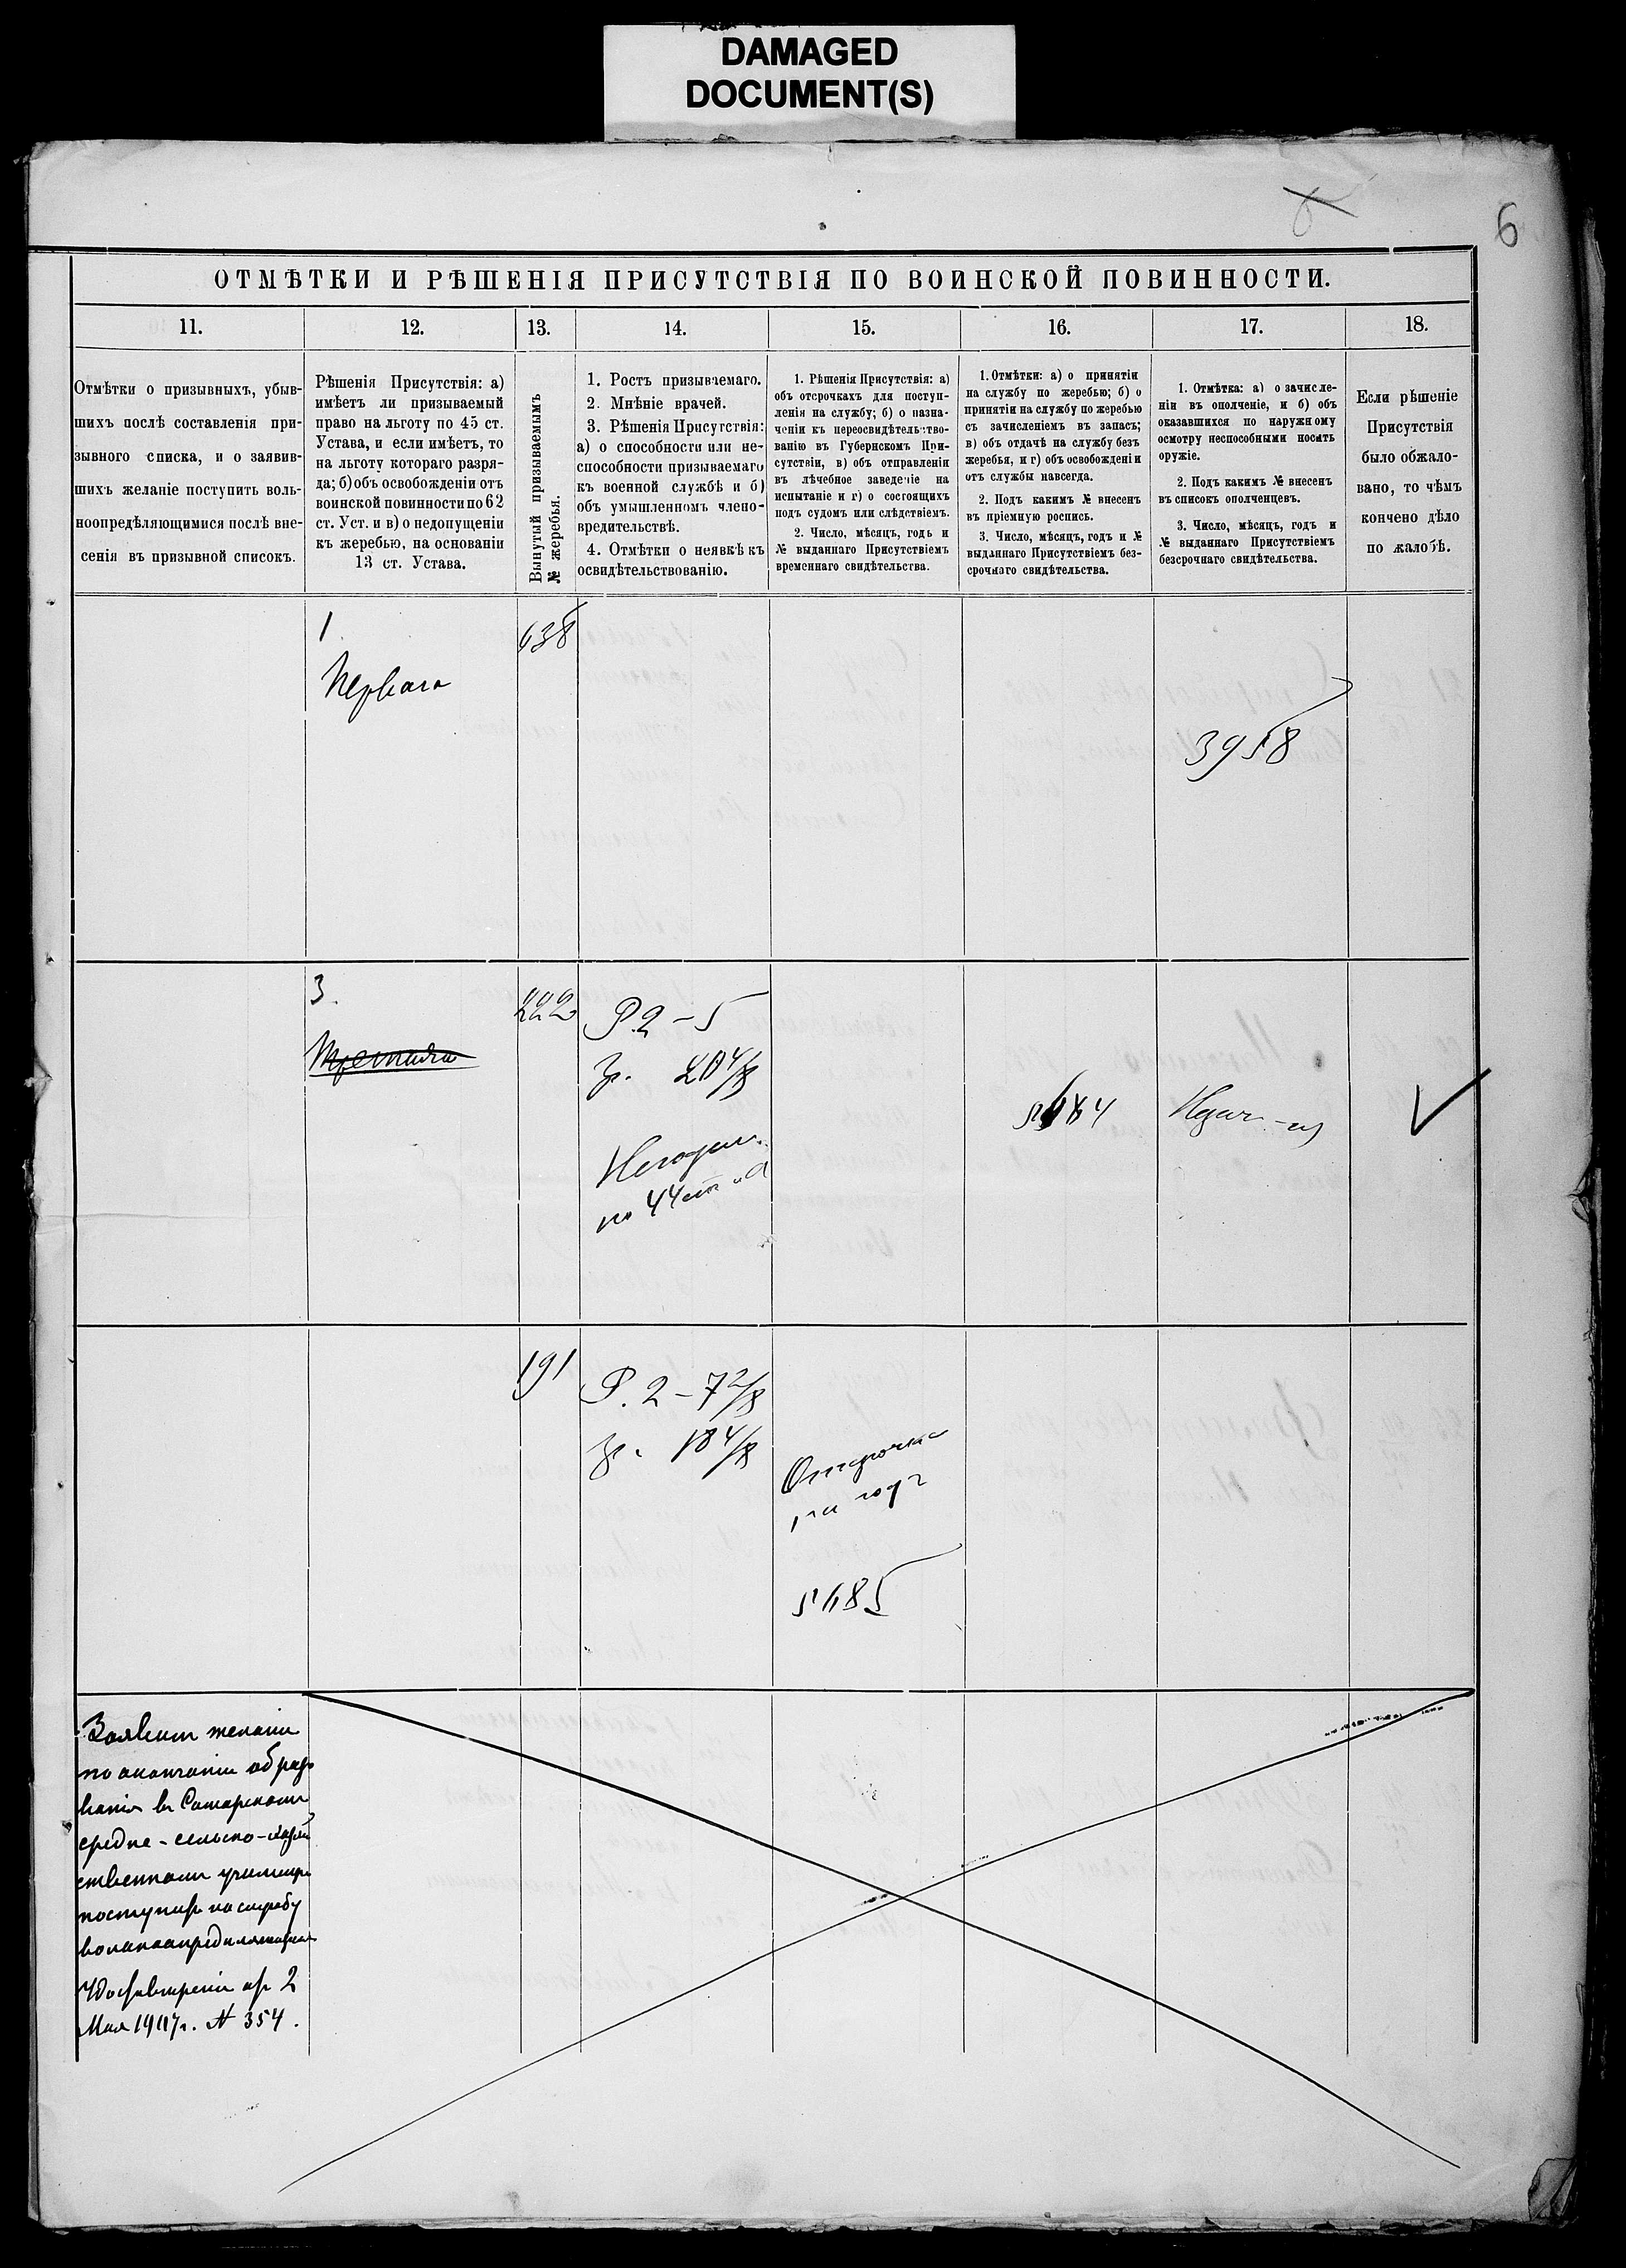 DAMAGED
DOCUMENT(S)
6
ОТМѢТКИ И РѢШЕНІЯ ПРИСУТСТВІЯ ПО ВОИНСКОЙ ПОВИННОСТИ.
11.
12.
13.
14.
15.
16.
17.
18.
Отмѣтки о призывныхъ, убыв-
шихъ послѣ составленія при-
зывного списка, и о заявив-
шихъ желаніе поступить воль-
ноопредѣляющимися послѣ вне-
сенія въ призывной списокъ.
Рѣшенія Присутствія: а)
имѣетъ ли призываемый
право на льготу по 45 ст.
Устава, и если имѣетъ, то
на льготу котораго разря-
да; б) объ освобожденіи отъ
воинской повинности по 62
ст. Уст. и в) о недопущеніи
къ жеребью, на основаніи
13 ст. Устава.
Вынутый призываемымъ
№ жеребья.
1. Ростъ призываемаго.
2. Мнѣніе врачей.
3. Рѣшенія Присутствія:
а) о способности или не-
способности призываемаго
къ военной службѣ и б)
объ умышленномъ члено-
вредительствѣ.
4. Отмѣтки о неявкѣ къ
освидѣтельствованію.
1. Рѣшенія Присутствія: а)
объ отсрочкахъ для поступ-
ленія на службу; б) о назна-
ченіи къ переосвидѣтельство-
ванію въ Губернскомъ При-
сутствіи, в) объ отправленіи
въ лѣчебное заведеніе на
испытаніе и г) о состоящихъ
подъ судомъ или слѣдствіемъ.
2. Число, мѣсяцъ, годъ и
№ выданнаго Присутствіемъ
временнаго свидѣтельства.
1. Отмѣтки: а) о принятіи
на службу по жеребью; б) о
принятіи на службу по жеребью
съ зачисленіемъ въ запасъ;
в) объ отдачѣ на службу безъ
жеребья, и г) объ освобожденіи
отъ службы навсегда.
2. Подъ какимъ № внесенъ
въ пріемную роспись.
3. Число, мѣсяцъ, годъ и №
выданнаго Присутствіемъ без-
срочнаго свидѣтельства.
1. Отмѣтка: а) о зачисле-
ніи въ ополченіе, и б) объ
оказавшихся по наружному
осмотру неспособными носить
оружіе.
2. Подъ какимъ № внесенъ
въ списокъ ополченцевъ.
3. Число, мѣсяцъ, годъ и
№ выданнаго Присутствіемъ
безсрочнаго свидѣтельства.
Если рѣшеніе
Присутствія
было обжало-
вано, то чѣмъ
кончено дѣло
по жалобѣ.
1.
Перваго
638
3958
3.
Третьяго
222
Р. 2 – 5
Гр. 20 4/8
по 44 ст
191
Р. 2 – 7 2/8
Гр. 18 4/8
Отсрочка
на годъ
5685
Заявилъ желаніе
по окончаніи образо
ванія въ Самарскомъ
средне-сельско-хозяй
ственномъ училищѣ
поступить на службу
вольноопредѣляющимся
Удостовѣреніе отъ 2
Мая 1907 г. № 354.